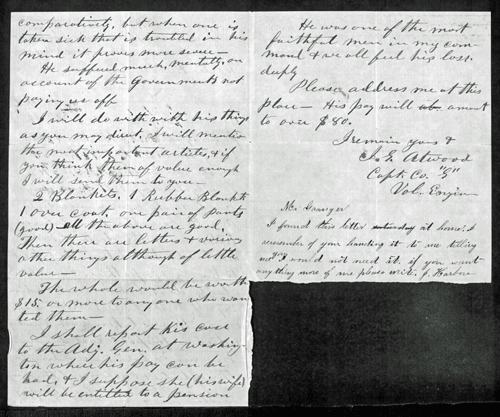 comparatively, but when one is
taken sick that is troubled in his
mind it proves more severe—
He suffered much, mentally, on
account of the Governments not
paying us off
I will do with with his things
as you may direct, I will mention
the most important articles, & if
you think them of value enough
I will send them to you—
2 Blankets, 1 Rubber Blanket
1 over coat, one pair of pants
(good) all the above are good,
Then there are letters & various
other things although of little
value—
The whole would be worth
$15. or more to any one who wan
ted them—
I shall report his case
to the Adj. Gen. at Washing-
ton where his pay can be
had, & I suppose she (his wife)
will be entitled to a pension
He was one of the most
faithful men in my com
mand & we all feel his loss.
deeply
Please address me at this
place— His pay will amont
to over $80.
I remain yours &
Atwood
Capt. Co. "G"
Vol. Engin
Mr Granger
I found this letter saturday at home. I
remember of your handing it to me telling
me I would not need it. if you want
anything more of me please write.